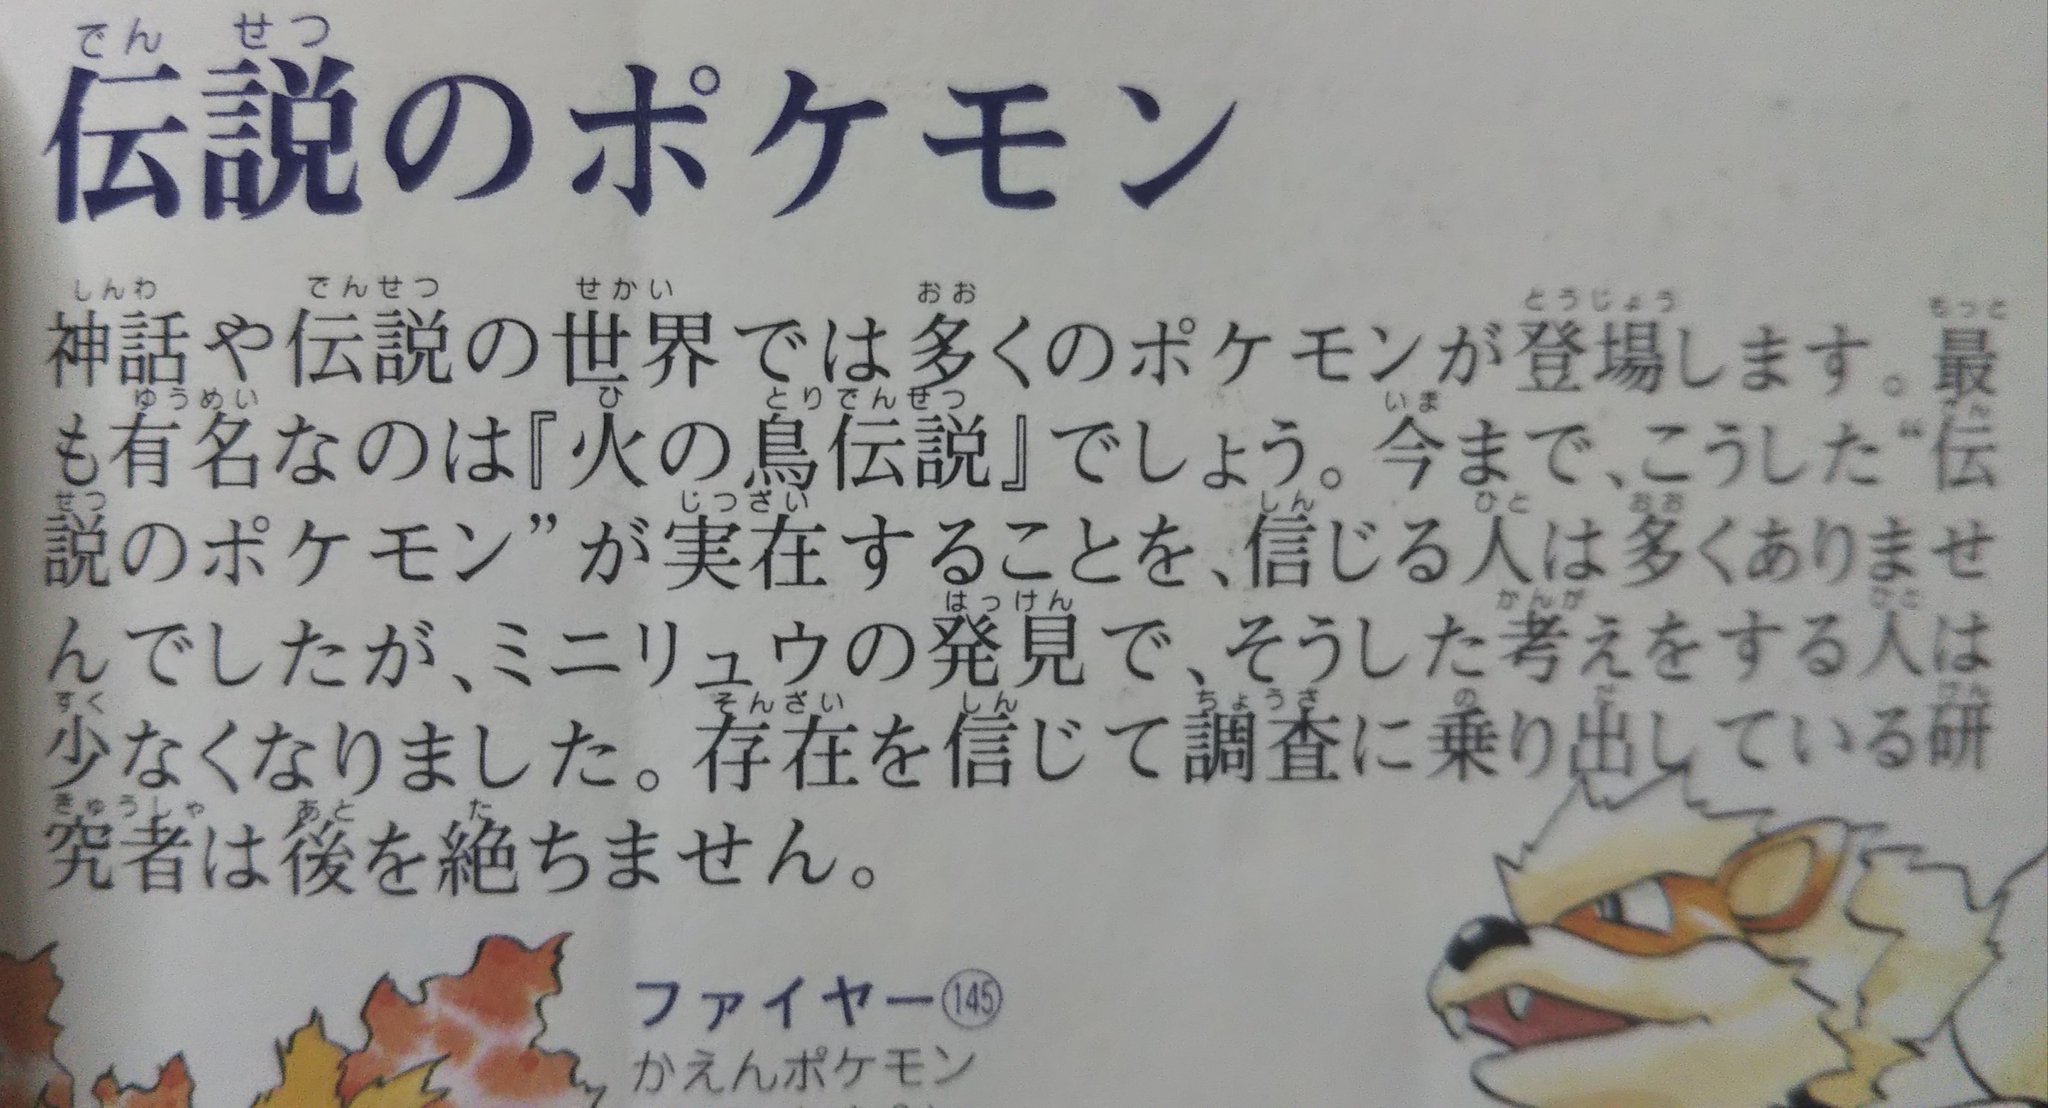 伝説のポケモン
神話や伝説の世界では多くのポケモンが登場します。最
も有名なのは『火の鳥伝説』でしょう。今まで、こうした“伝
説のポケモン”が実在することを、信じる人は多くありませ
んでしたが、ミニリュウの発見で、そうした考えをする人は
少なくなりました。存在を信じて調査に乗り出している研
究者は後を絶ちません。
ファイヤー(145)
かえんポケモン